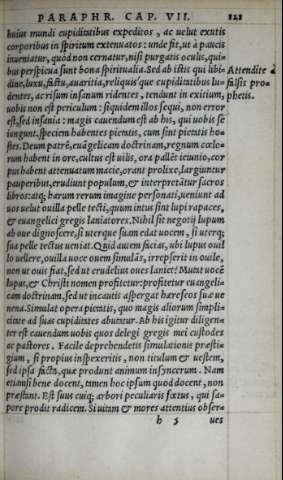 PARAPHR. CAP. VII. 121
huius mundi cupiditatibus expeditos, ac uelut exutis
corporibus in spiritum extenuatos: unde fit, ut à paucis
inueniatur, quòd non cernatur, nisi purgatis oculis, qui=
bus perspicua sunt bona spiritualia. Sed ab istis qui libi=
dine, luxu, fastu, auaritia, reliquisque cupiditatibus lu=
dentes, ac risum insanum ridentes, tendunt in exitium,
uobis non est periculum: siquidem illos sequi, non error
est, sed insania: magis cauendum est ab his, qui uobis se
iungunt, speciem habentes pietatis, cum sint pietatis ho=
stes. Deum patrē, euāgelicam doctrinam, regnum cœlo=
rum habent in ore, cultus est uilis, ora pallēt ieiunio, cor
pus habent attenuatum macie, orant prolixe, largiuntur
pauperibus, erudiunt populum, & interpretātur sacros
libros: atque harum rerum imagine personati, ueniunt ad
uos uelut ouilla pelle tecti, quum intus sint lupi rapaces,
& euangelici gregis laniatores. Nihil sit negotij lupum
ab oue dignoscere, si uterque suam edat uocem, si uterque
sua pelle tectus ueniat. Quid autem facias, ubi lupus ouil
lo uellere, ouilla uoce ouem simulās, irrepserit in ouile,
non ut ouis fiat, sed ut crudelius oues laniet? Mutit uocē
lupus, & Christi nomen profitetur: profitetur euangeli=
cam doctrinam, sed ut incautis aspergat hæreseos suæ ue
nena. Simulat opera pietatis, quo magis aliorum simpli=
citate ad suas cupiditates abutatur. Ab his igitur diligen=
ter est cauendum uobis quos delegi gregis mei custodes
ac pastores. Facile deprehendetis simulationis præsti=
gium, si propius inspexeritis, non titulum & uestem,
sed ipsa facta, quæ produnt animum insyncerum. Nam
etiamsi bene docent, tamen hoc ipsum quod docent, non
præstant. Est suus cuique arbori peculiaris fœtus, qui sa=
pore prodit radicem. Si uitam & mores attentius obser=
h 5 ues
Attendite à
falsis pro=
phetis.